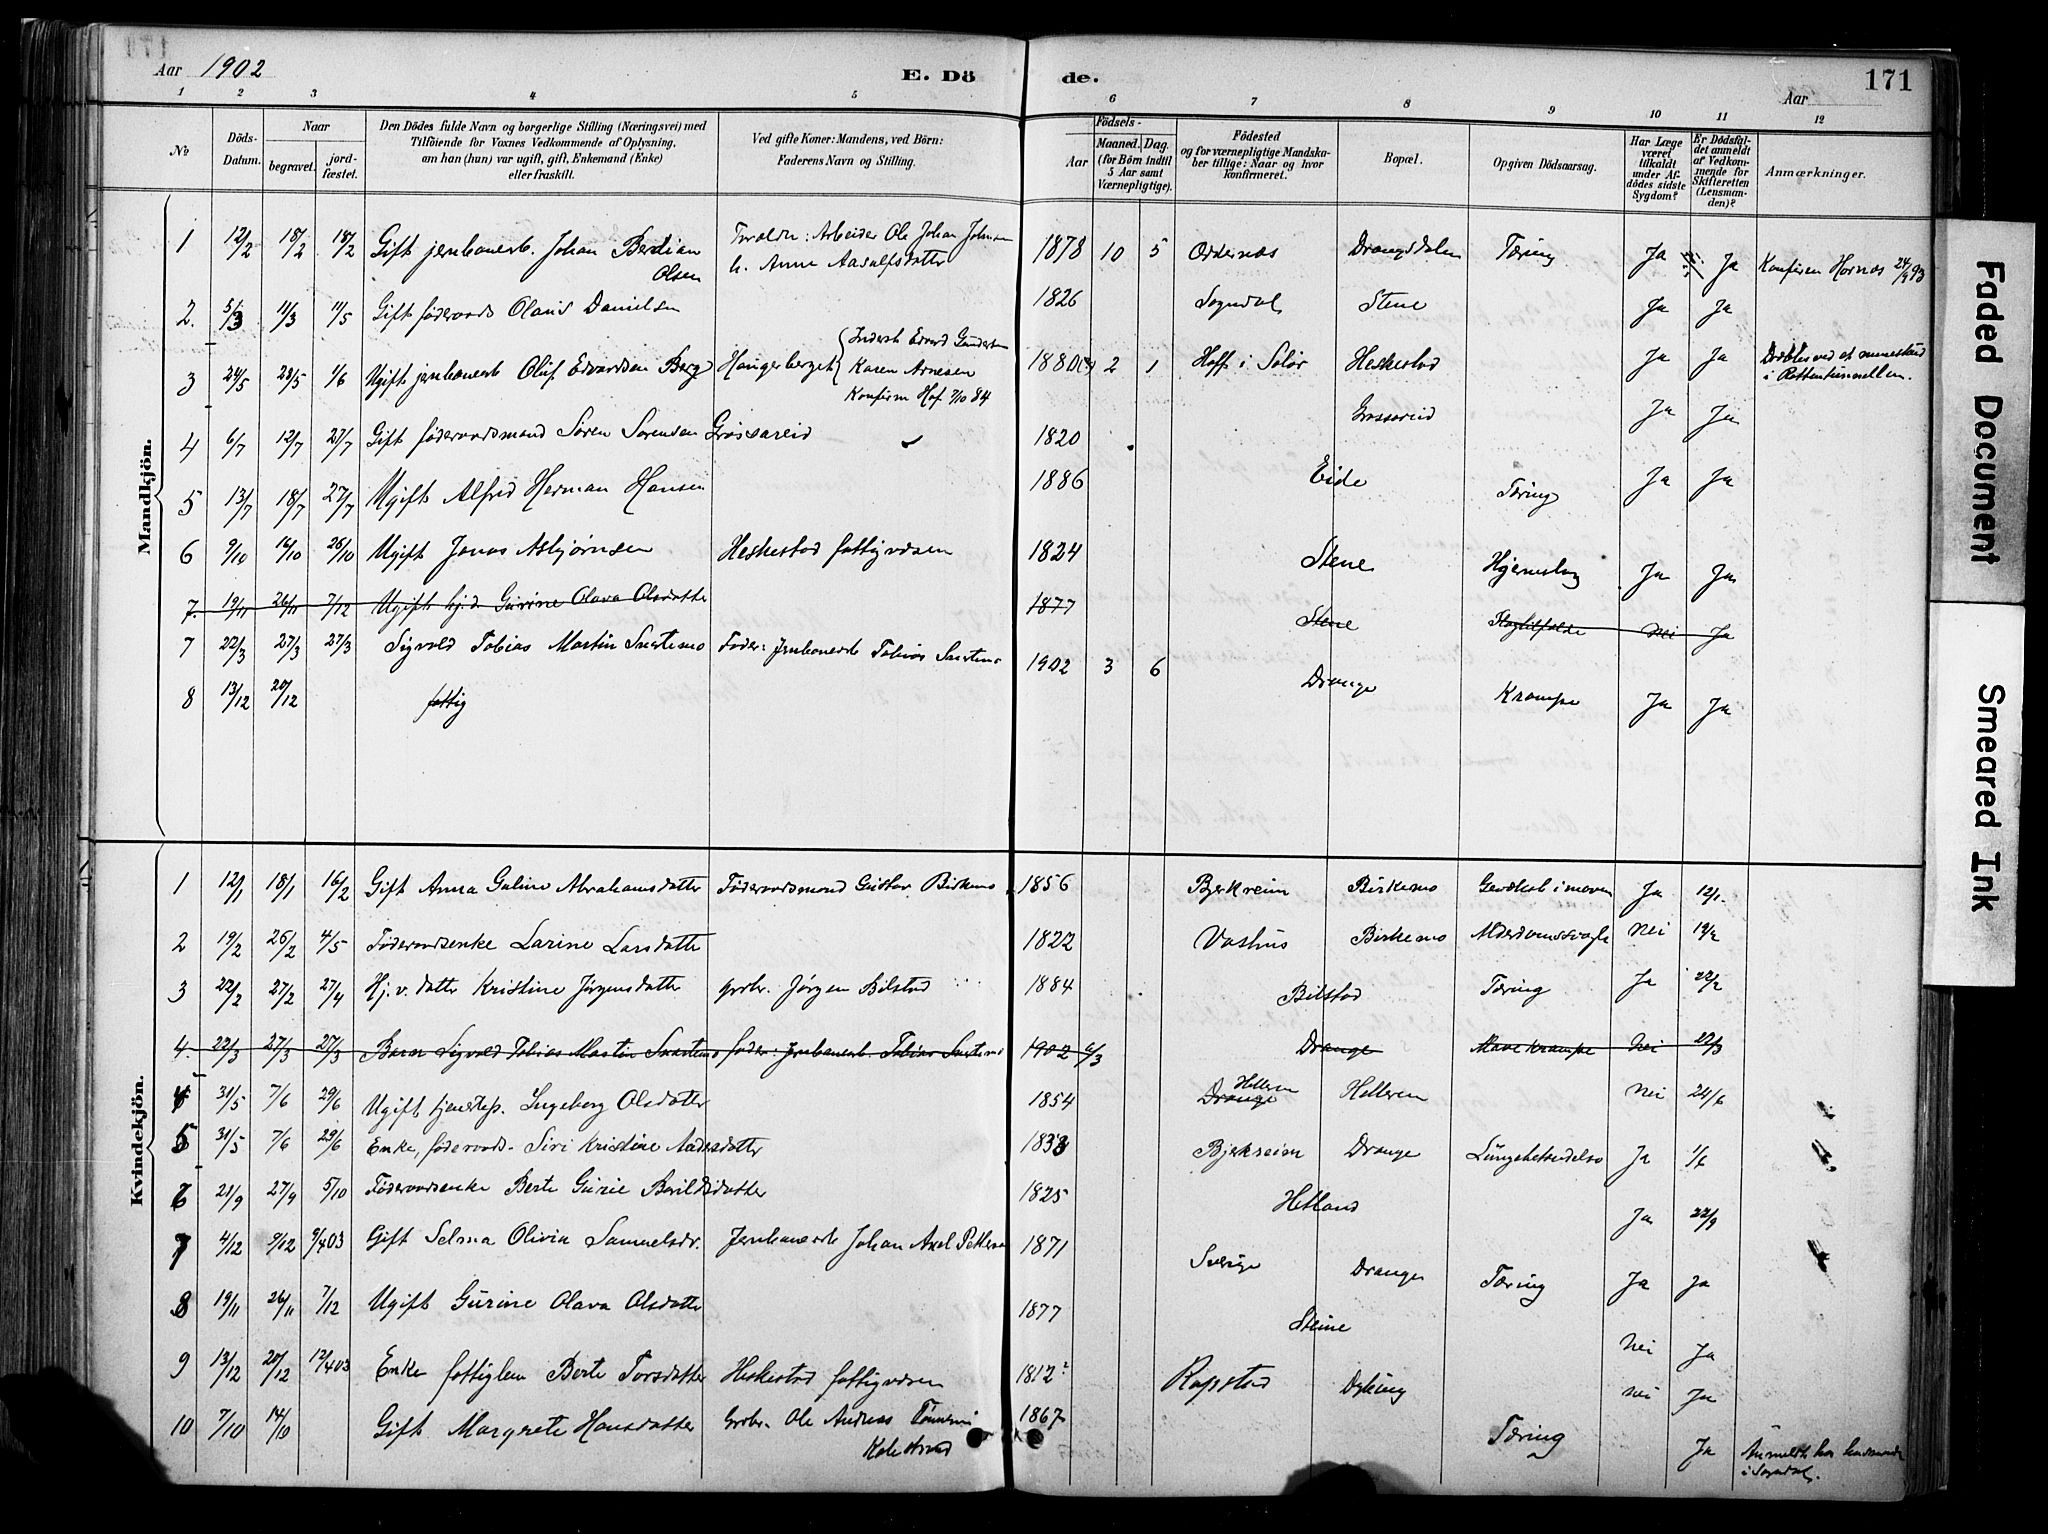 Aar 1902
E. Döde.
Aar
171
1 2 3 4 5 6 7 8 9 10 11 12
№
Döds-Datum.
Naar
begravet.
jordfæstet.
Den Dödes fulde Navn og borgerlige Stilling (Næringsvei) med
Tilföiende for Voxnes Vedkommende af Oplysning,
om han (hun) var ugift, gift, Enkemand (Enke)
eller fraskilt.
Ved gifte Koner: Mandens, ved Börn:
Faderens Navn og Stilling.
Födsels-
Aar
Maaned. Dag.
(for Börn indtil
5 Aar samt
Værnepligtige).
Födested
og for værnepligtige Mandskaber tillige: Naar og hvor
konfirmeret.
Bopæl.
Opgiven Dödsaarsag.
Har Læge været tilkaldt under Afdödes sidste Sygdom?
Er Dödsfaldet anmeldt af Vedkommende for Skifteretten (Lensmanden)?
Anmærkninger.
Mandkjön.
1 12/2 18/2 18/2 Gift jernbanearb. Johan Bertian Olsen Arbeider Ole Johan Johnsen h. Anne Aasulfsdatter 1878 10 5 Oddernæs Drangsdalen Tæring Ja Ja Konfirm Hornæs 24/9 93
2. 5/3 11/3 11/5 Gift föderaads Olaus Danielsen 1826 Sogndal Stene Ja Ja
3 24/5 28/5 1/6 Ugift jernbanearb Oluf Edvardsen Berg Haugerberget Inderst Edvard Gundersen Karen Arnesen Konfirm Hof 7/10 84 1880 2 1 Hoff i Solör Heskestad Ja Ja Dræbtes ved et minestud i Rottentunnellen.
4 6/7 12/7 27/7 Gift föderaadsmand Sören Sörensen Grössareid 1820 Grössareid Ja Ja
5 13/7 18/7 27/7 Ugift Alfred Herman Hansen 1886 Eide Tæring Ja Ja
6 9/10 16/10 26/10 Ugift Jonas Asbjørnsen Heskestad fattigvæsen 1824 Stene Hjerneslag Ja Ja
7. 19/11 26/11 7/12 Ugift hj.d. Gurine Olava Olsdatter 1877 Stene Slagtilfælde Nei Ja
7 22/3 27/3 27/3 Sigvald Tobias Martin Snartemo Fader: Jernbanearb Tobias Snartemo 1902 3 6 Drange Krampe Ja Ja
8 13/12 20/12 fattig
Kvindekjön.
1 12/1 18/1 16/2 Gift Anna Galine Abrahamsdatter Föderaadsmand Gustav Birkemo 1856 Bjerkreim Birkemo Gevækst i maven Ja 12/1.
2 19/2 26/2 4/5 Föderaadsenke Larine Larsdatter 1822 Vashus Birkemo Alderdomssvaghe Nei 19/2
3 22/2 27/2 27/4 Hj.v. datter Kristine Jørgensdatter grbr. Jørgen Bilstad 1884 Bilstad Tæring Ja 22/2
4. 22/3 27/3 27/3 Barn Sigvald Tobias Martin Snartemo fader: Jernbanearb Tobias Snartemo 1902 6/3 Drange Mave krampe Nei 22/3
4 31/5 7/6 29/6 Ugift tjenstep. Ingeborg Olsdatter 1854 Drange Helleren Helleren Nei 24/6
5 31/5 7/6 29/6 Enke, föderaads- Siri Kristine Andersdatter 1833 Bjerkreim Drange Lungebetændelse Ja 1/6
6 21/9 27/9 5/10 Föderaadsenke Berte Gurie Bårildsdatter 1825 Hetland Ja 22/9
7 4/12 9/12 9/4 03 Gift Selma Olivia Samuelsdr. Jernbanearb Johan Axel Petterson 1871 Sverige Drange Tæring Ja Ja
8 19/11 26/11 7/12 Ugift Gurine Olava Olsdatter 1877 Steine Nei Ja
9 13/12 20/12 12/4 03 Enke fattiglem Berte Torsdatter Heskestad fattigvæsen 1812 Rapstad Dyking Nei Ja
10 7/10 14/10 Gift Margrete Hansdatter Grdbr. Ole Andreas 1867 Tæring Ja i Sogndal.
Faded Document
Smeared Ink